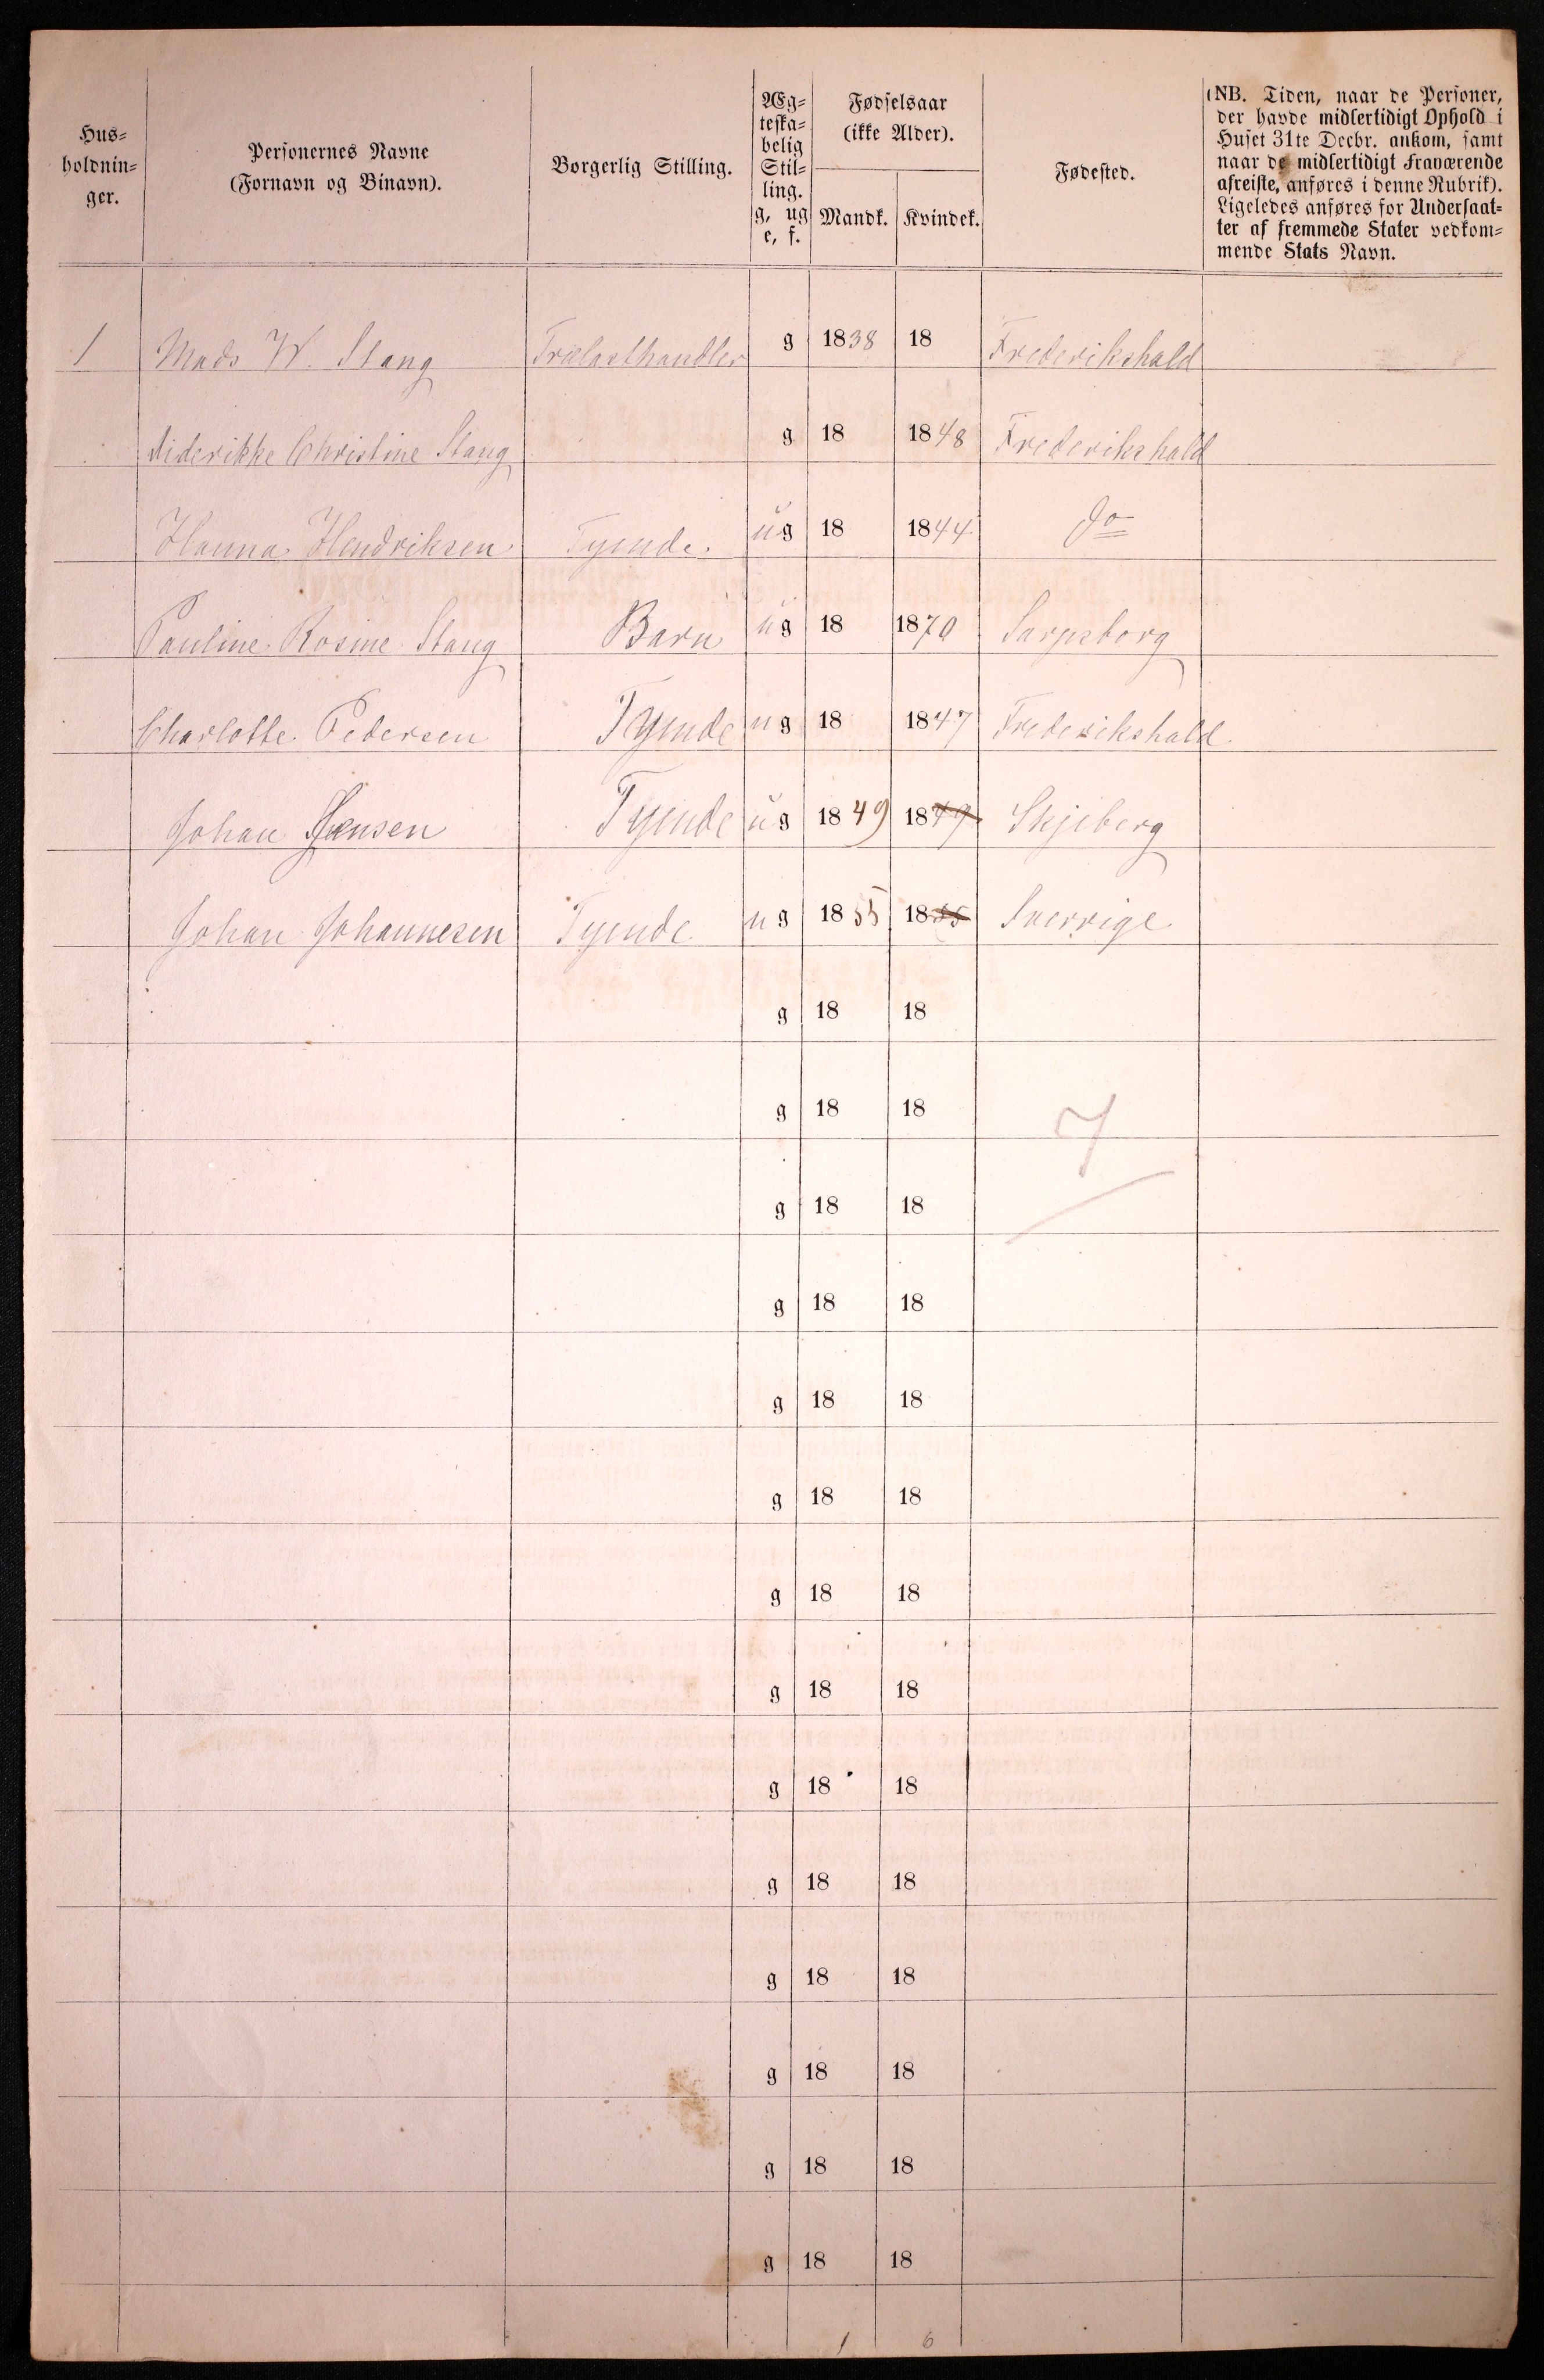 Hus-
holdnin-
ger.
Personernes Navne
(Fornavn og Binavn).
Borgerlig Stilling.
Æg-
teska-
belig
Stil-
ling.
g, ug
e, f.
Fødselsaar
(ikke Alder).
Mandk. Kvindek.
Fødested.
(NB. Tiden, naar de Personer,
der havde midlertidigt Ophold i
Huset 31te Decbr. ankom, samt
naar de midlertidigt Fraværende
afreiste, anføres i denne Rubrik).
Ligeledes anføres for Undersaat-
ter af fremmede Stater vedkom-
mende Stats Navn.
1 Mads W. Stang Trælasthandler g 1838 18 Frederikshald
Diderikke Christine Stang g 18 1848 Frederikshald
Hanna Hendriksen Tyende. ug 18 1844 do
Pauline Rosine Stang Barn ug 18 1870 Sarpsborg
Charlotte Pedersen Tyende ug 18 1847 Frederikshald.
Johan Jensen Tyende ug 1849 1849 Skjeberg
Johan Johannesen Tyende ug 1855 1855 Sverrige
g 18 18
g 18 18
7
g 18 18
g 18 18
g 18 18
g 18 18
g 18 18
g 18 18
g 18 18
g 18 18
g 18 18
g 18 18
g 18 18
g 18 18
1 6